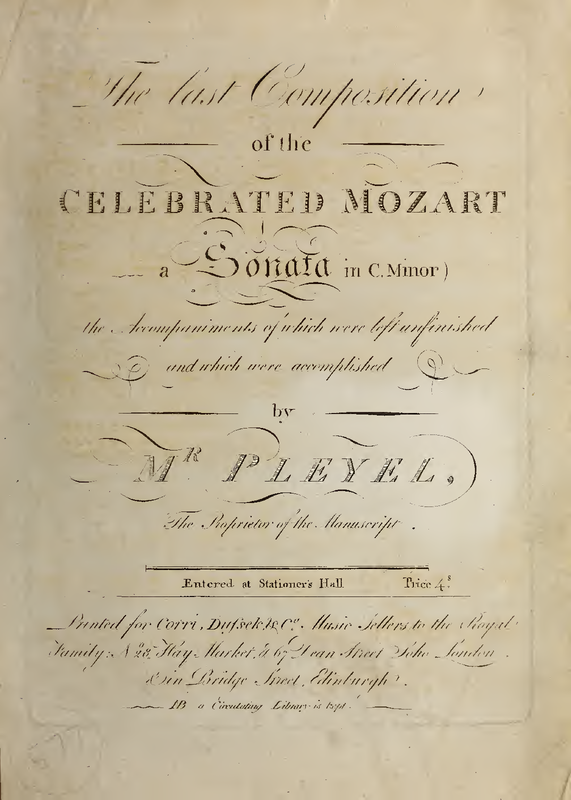 The last Composition
of the
CELEBRATED MOZART
a Sonata in C. Minor)
the Accompaniments of which were left unfinished
and which were accomplished
by
MR PLEYEL,
The Proprietor of the Manuscript.
Entered at Stationer's Hall Price 4s.
Printed for Corri, Dussek, & Co. Music Sellers to the Royal
Family; No 28, Hay Market, & 67 Dean Street Soho London
& in Bridge Street, Edinburgh.
NB a Circulating Library is kept